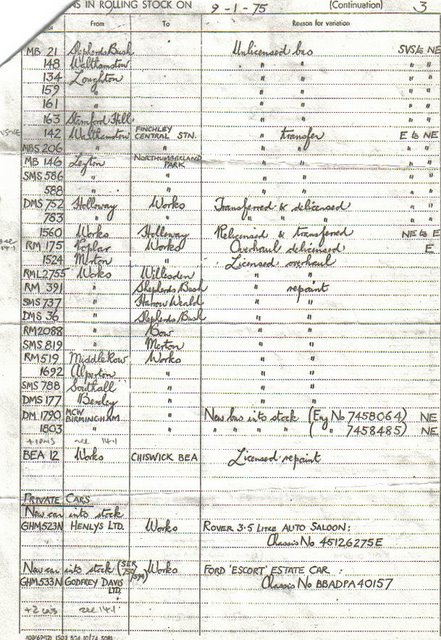 AS IN ROLLING STOCK ON 9-1-75 (Continuation) 3
From To Reason for variation
MB 21 Shepherds Bush Unlicensed bus SVS to NE
148 Walthamstow " " " "
134 Loughton " " " "
159 " " " " "
161 " " " " "
163 Stamford Hill " " " "
142 Walthamstow FINCHLEY CENTRAL STN. " transfer E to NE
MBS 206 " " " " "
MB 146 Leyton NORTHUMBERLAND PARK " " " "
SMS 586 " " " " " "
588 " " " " " "
DMS 752 Holloway Works Transferred & delicensed " "
783 " " " " " " "
1560 Works Holloway Relicensed & transferred NE to E
RM 175 Poplar Works Overhaul delicensed E
1524 Merton " Licensed overhaul
RML2755 Works Willesden " "
RM 391 " Shepherds Bush " repaint
SMS 737 " Harrow Weald " "
DMS 36 " Shepherds Bush " "
RM2088 " Bow " "
SMS 819 " Merton " "
RM 519 Middle Row Works " "
1692 Alperton " " "
SMS 788 Southall " " "
DMS 177 Bexley " " "
DM 1790 MCW BIRMINGHAM " New bus into stock (Eng No 7458064) NE
1803 " " " " " " ( " 7458485) NE
see 14.1
BEA 12 Works CHISWICK BEA Licensed repaint
PRIVATE CARS
New car into stock
GHM523N HENLYS LTD. Works ROVER 3.5 Litre AUTO SALOON:
Chassis No 45126275E
New car into stock Works FORD 'ESCORT' ESTATE CAR:
GHM533N GODFREY DAVIS LTD. Chassis No BBADPA40157
see 14.1